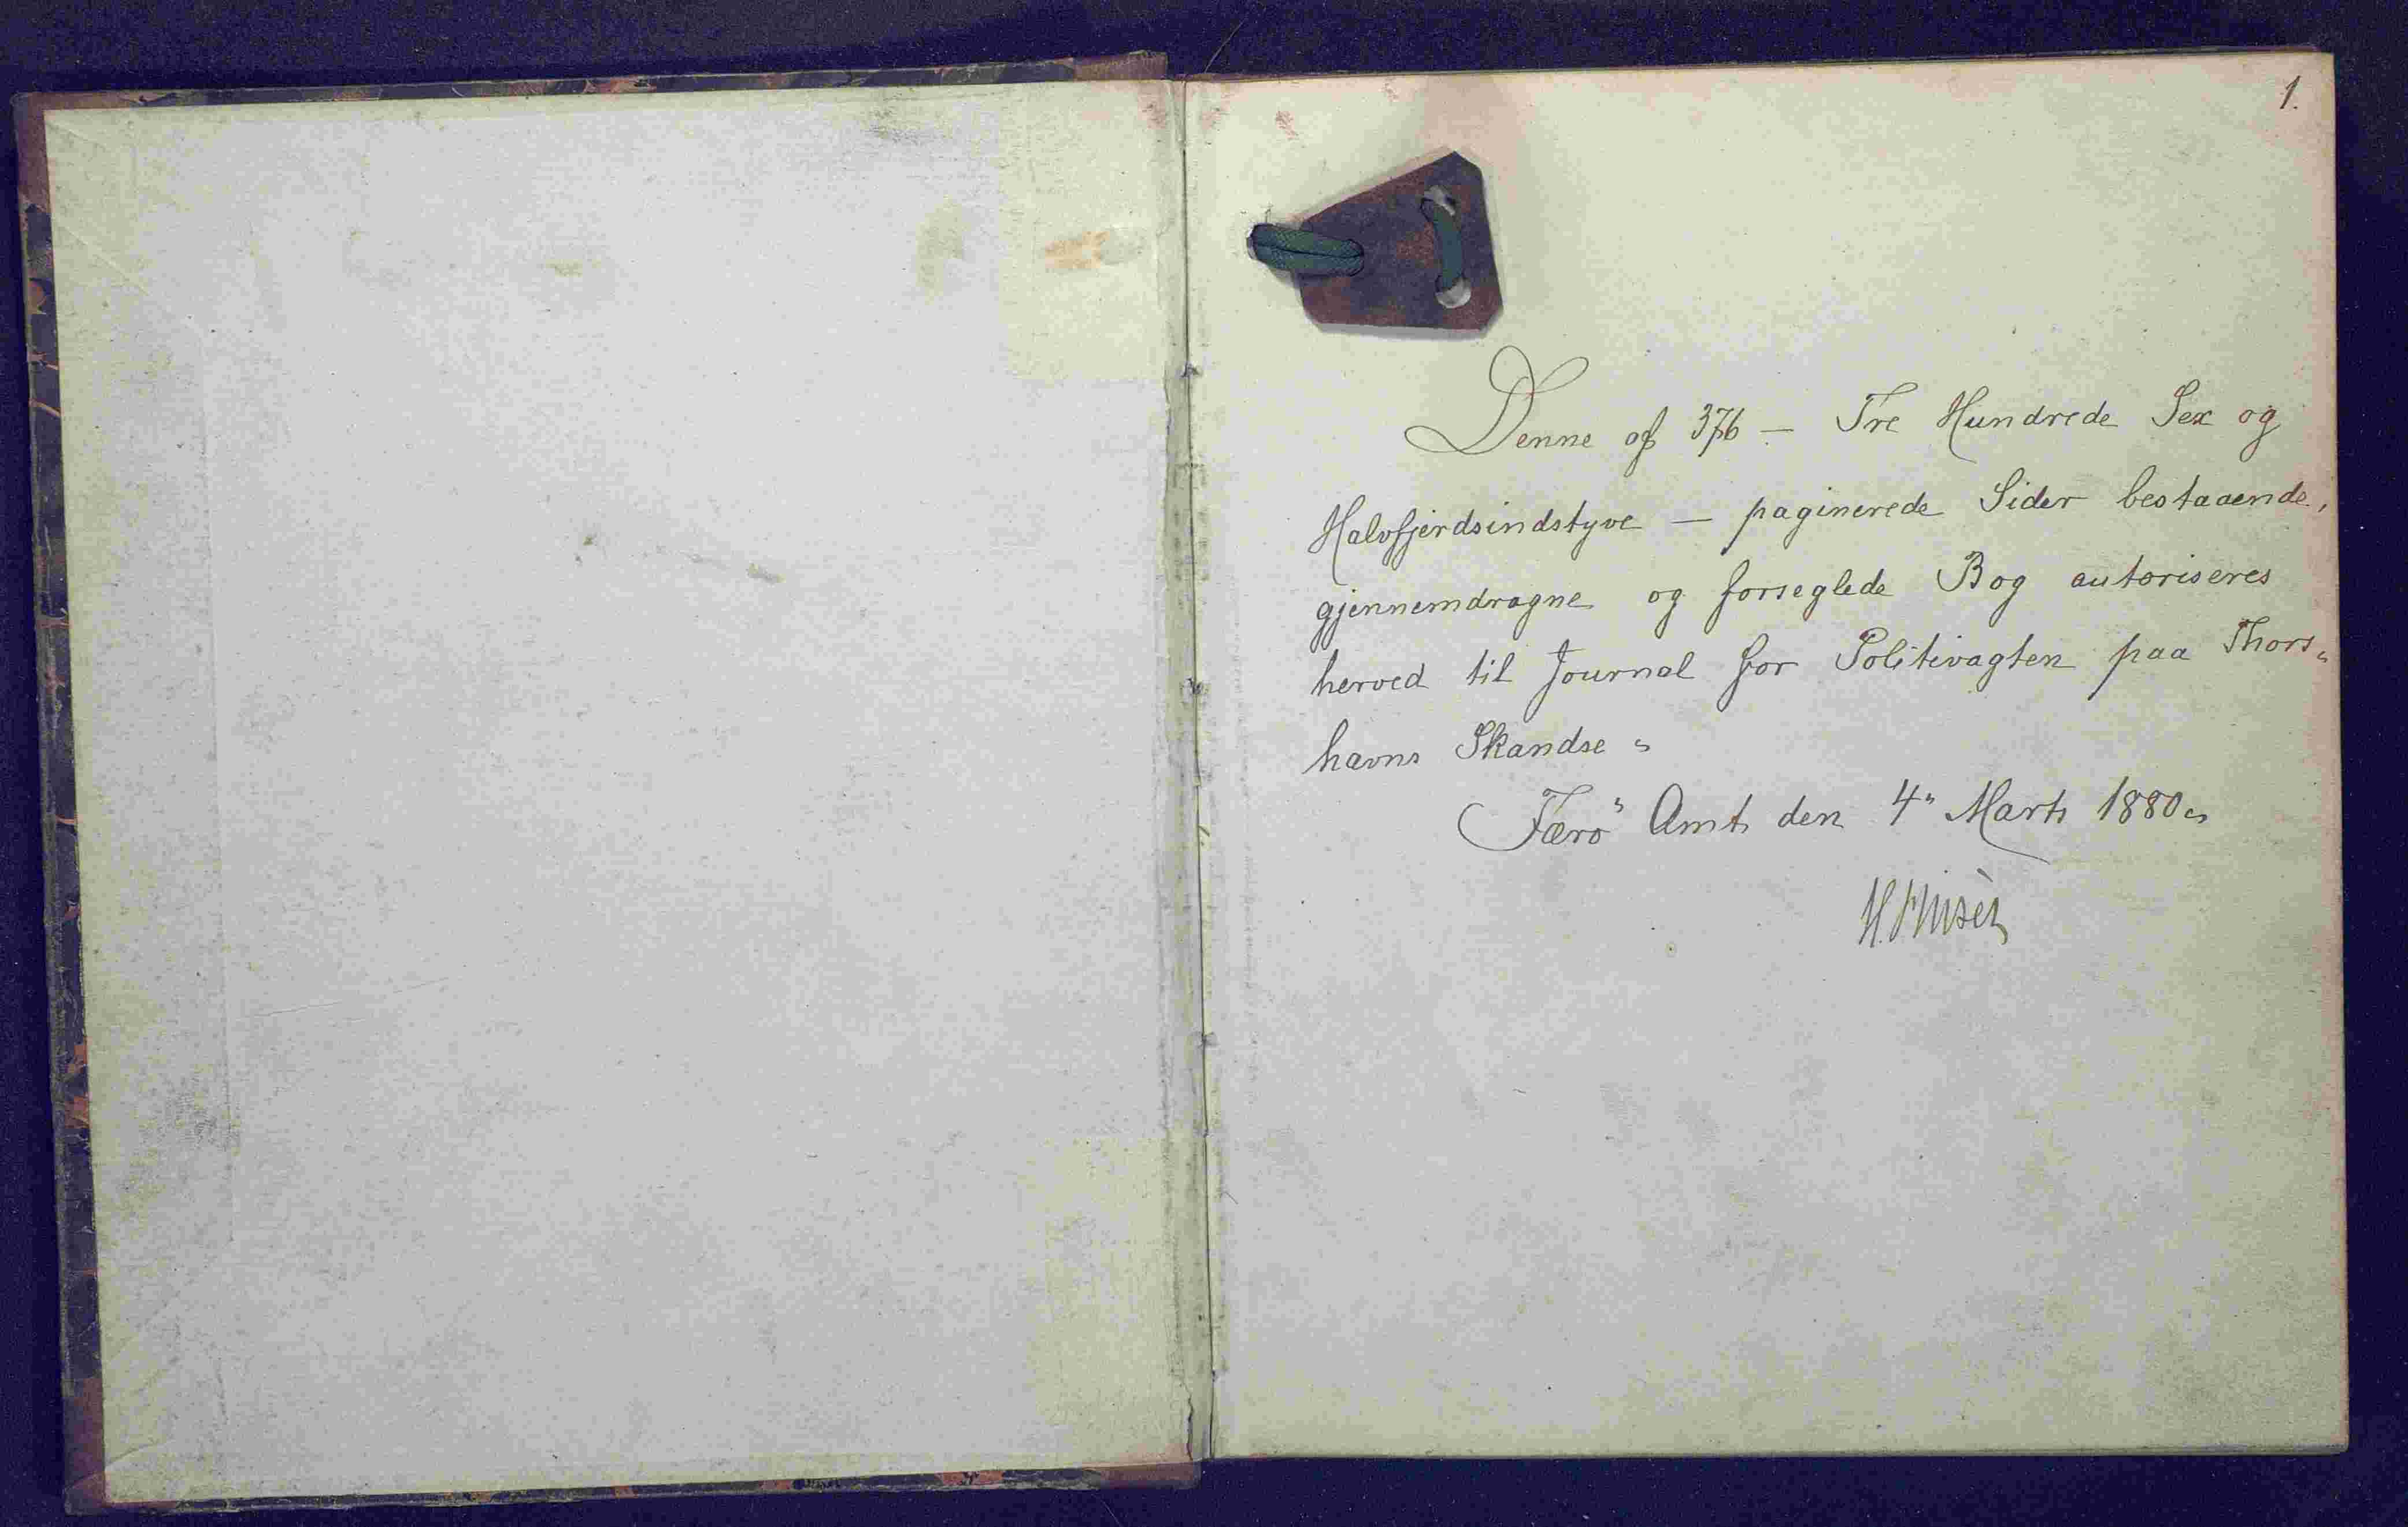 1.
Denne af 376 — Tre Hundrede Sex og
Halvfjerdsindstyve — paginerede Sider bestaaende,
gjennemdragne og forseglede Bog autoriseres
herved til Journal for Politivagten paa Thors„
havns Skandse „
Færö Amt den 4" Marts 1880„
H. Finsen